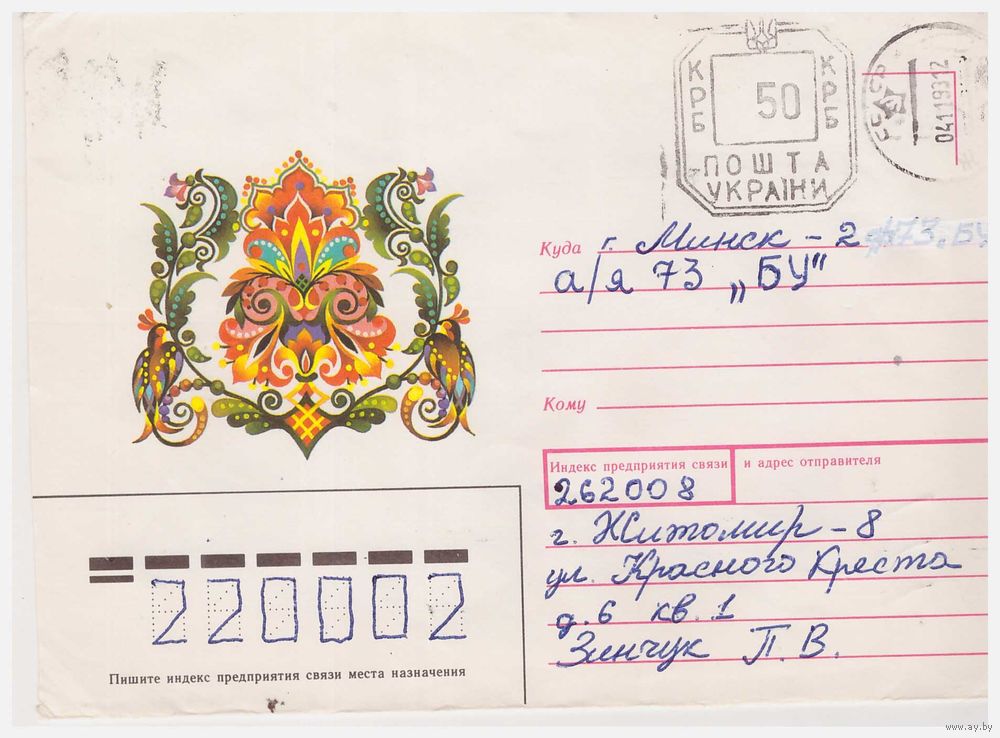 КРБ 50 КРБ
ПОШТА
УКРАЇНИ
041193 12
Куда г. Минск - 2
а/я 73 „БУ"
Кому
Индекс предприятия связи и адрес отправителя
262008
г. Житомир - 8
ул. Красного Креста
д. 6 кв. 1
Зинчук П. В.
220002
Пишите индекс предприятия связи места назначения
www.ay.by